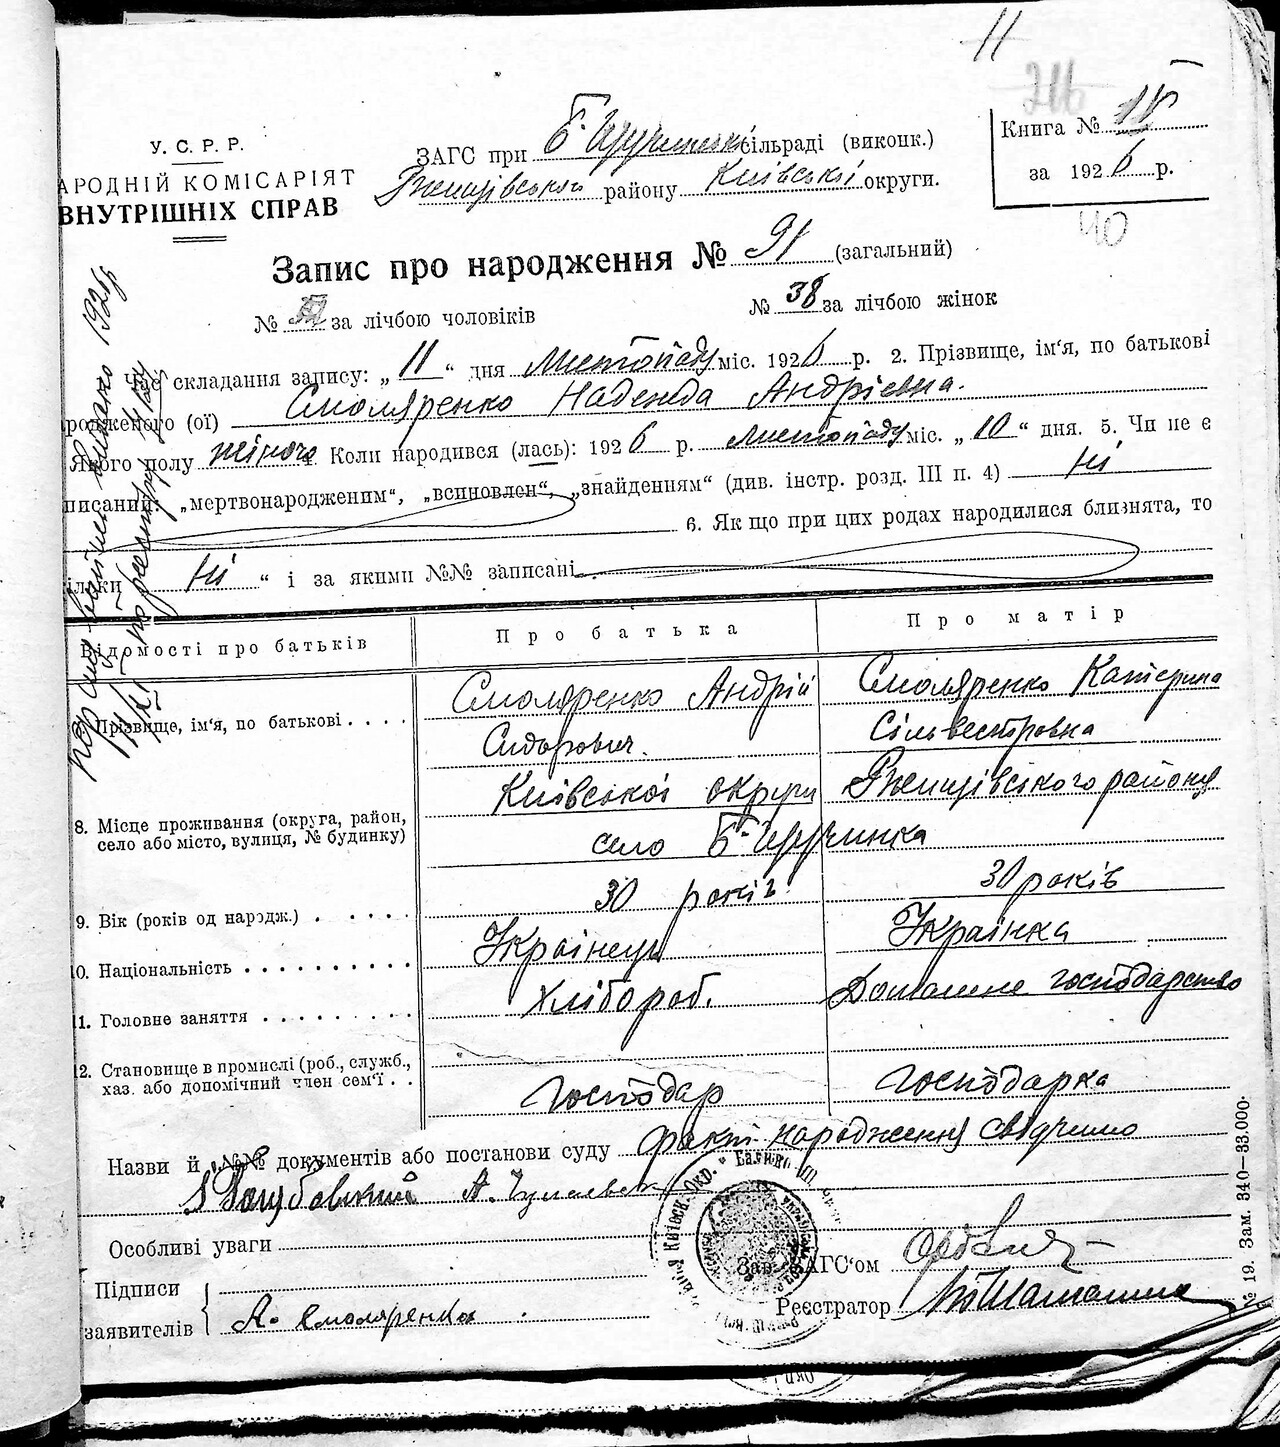 11
216
У. С. Р. Р.
АРОДНІЙ КОМІСАРІЯТ
ВНУТРІШНІХ СПРАВ
ЗАГС при сільраді (виконк.)
Ржищівського району Київської округи.
Книга №
за 1926 р.
40
Запис про народження № 91 (загальний)
№ за лічбою чоловіків
№ 38 за лічбою жінок
Час складання запису: „ 11 “ дня Листопаду міс. 1926 р. 2. Прізвище, ім'я, по батькові
родженого (ої) Смоляренко Надежда Андрієвна.
Якого полу жіноч 4. Коли народився (лась): 1926 р. Листопаду міс. „ 10 “ дня. 5. Чи не є
писаний: „мертвонародженим“, „всиновлен“, „знайденням“ (див. інстр. розд. III п. 4) Ні
6. Як що при цих родах народилися близнята, то
ільки Ні “ і за якими №№ записані
Відомості про батьків
Про батька
Про матір
Прізвище, ім'я, по батькові
Смоляренко Андрій
Сидорович.
Смоляренко Катерина
Сільвестровна
8. Місце проживання (округа, район,
село або місто, вулиця, № будинку)
Київської округи Ржищівського району
село
9. Вік (років од нарядж.)
30 років
30 років
10. Національність
Українець
Українка
11. Головне заняття
Хлібороб.
Домашнє господарство
12. Становище в промислі (роб., служб.,
хаз. або допомічний член сем'ї
Господар
Господарка
Назви й №№ документів або постанови суду факт народження свідчимо
Особливі уваги
Підписи
заявителів
А. Смоляренко
Зав. ЗАГС'ом
Реєстратор
№ 19. Зам. 340—33.000.